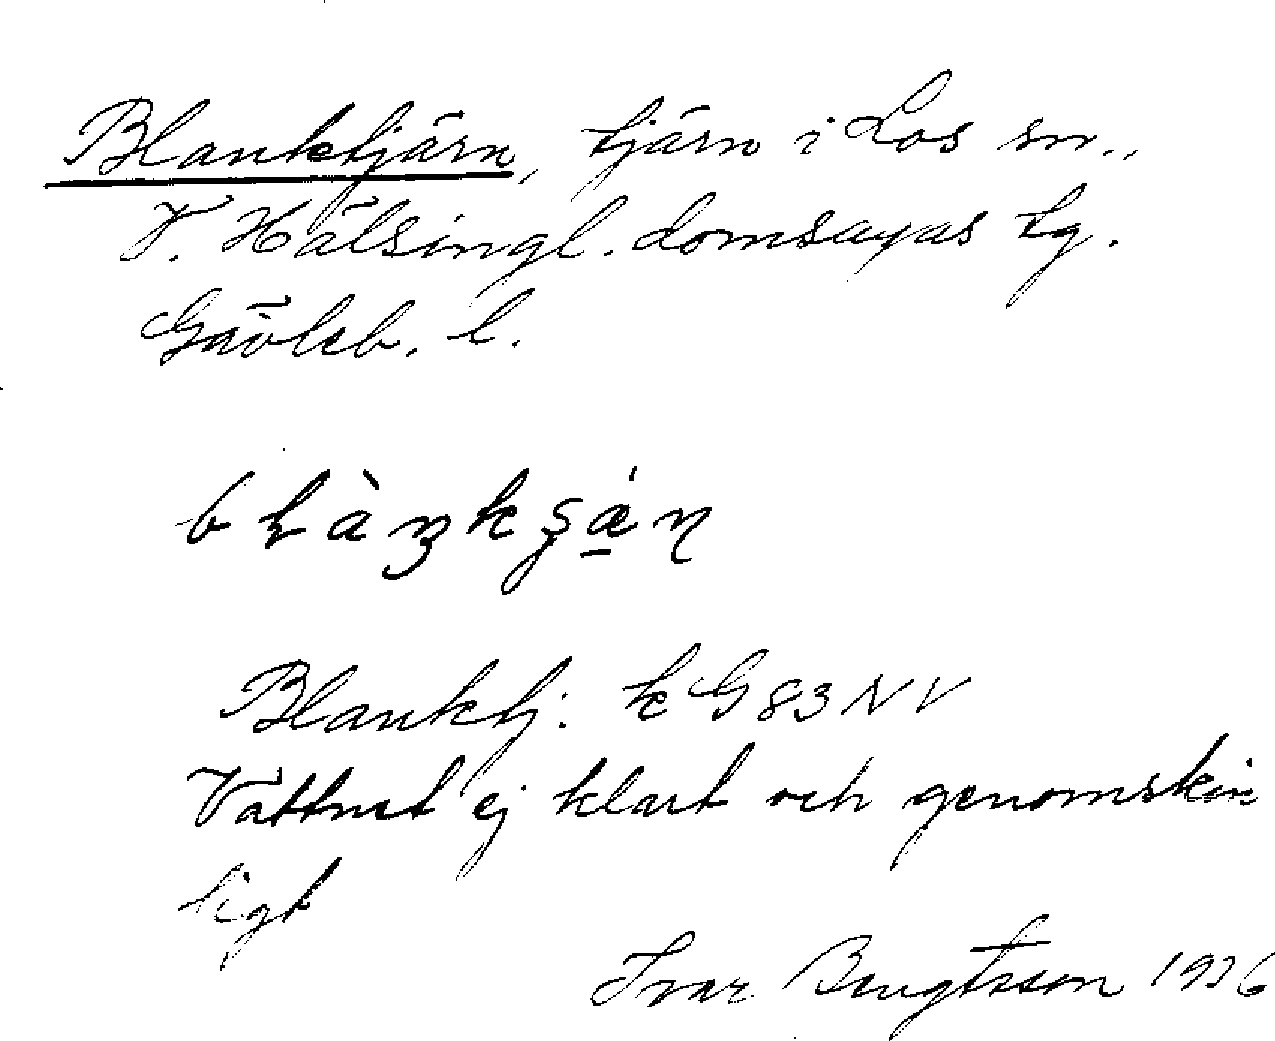 Blanktjärn, tjärn i Los sn.,
V. Hälsingl. domsagas tg.
Gävleb. l.
Blanktj: k G83NV
Vattnet ej klart och genomskin
ligt
Ivar Bengtsson 1936